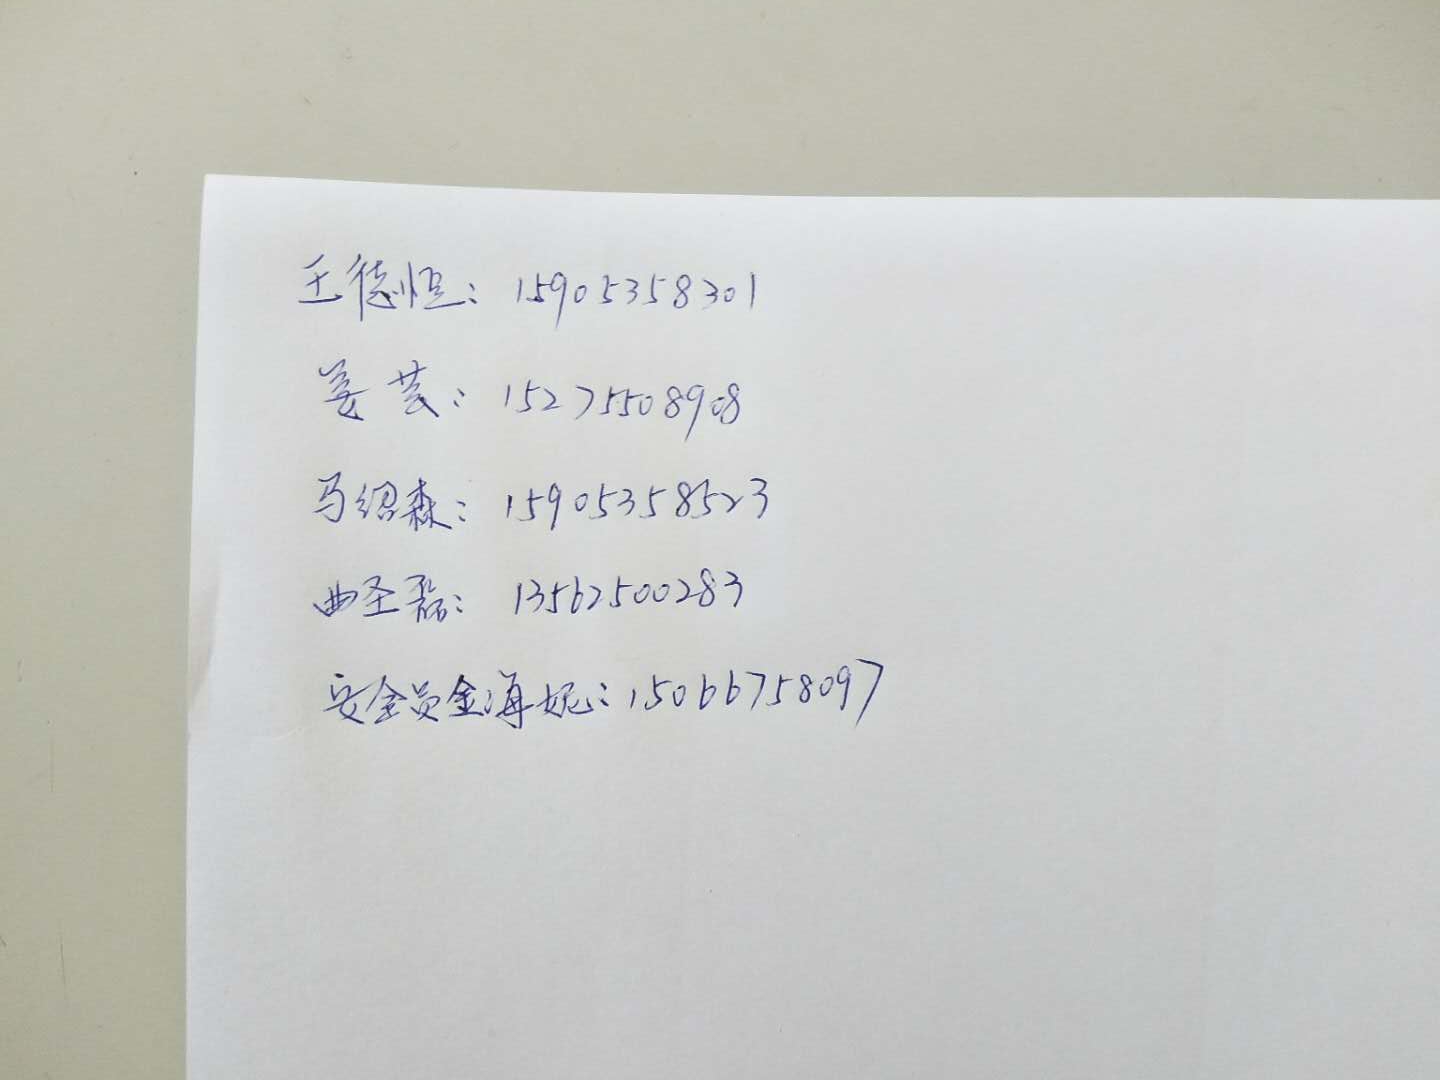 王德恒：15905358301
姜芸：15275508908
马绍森：15905358523
曲圣磊：13562500283
安全员金海妮：15066758097